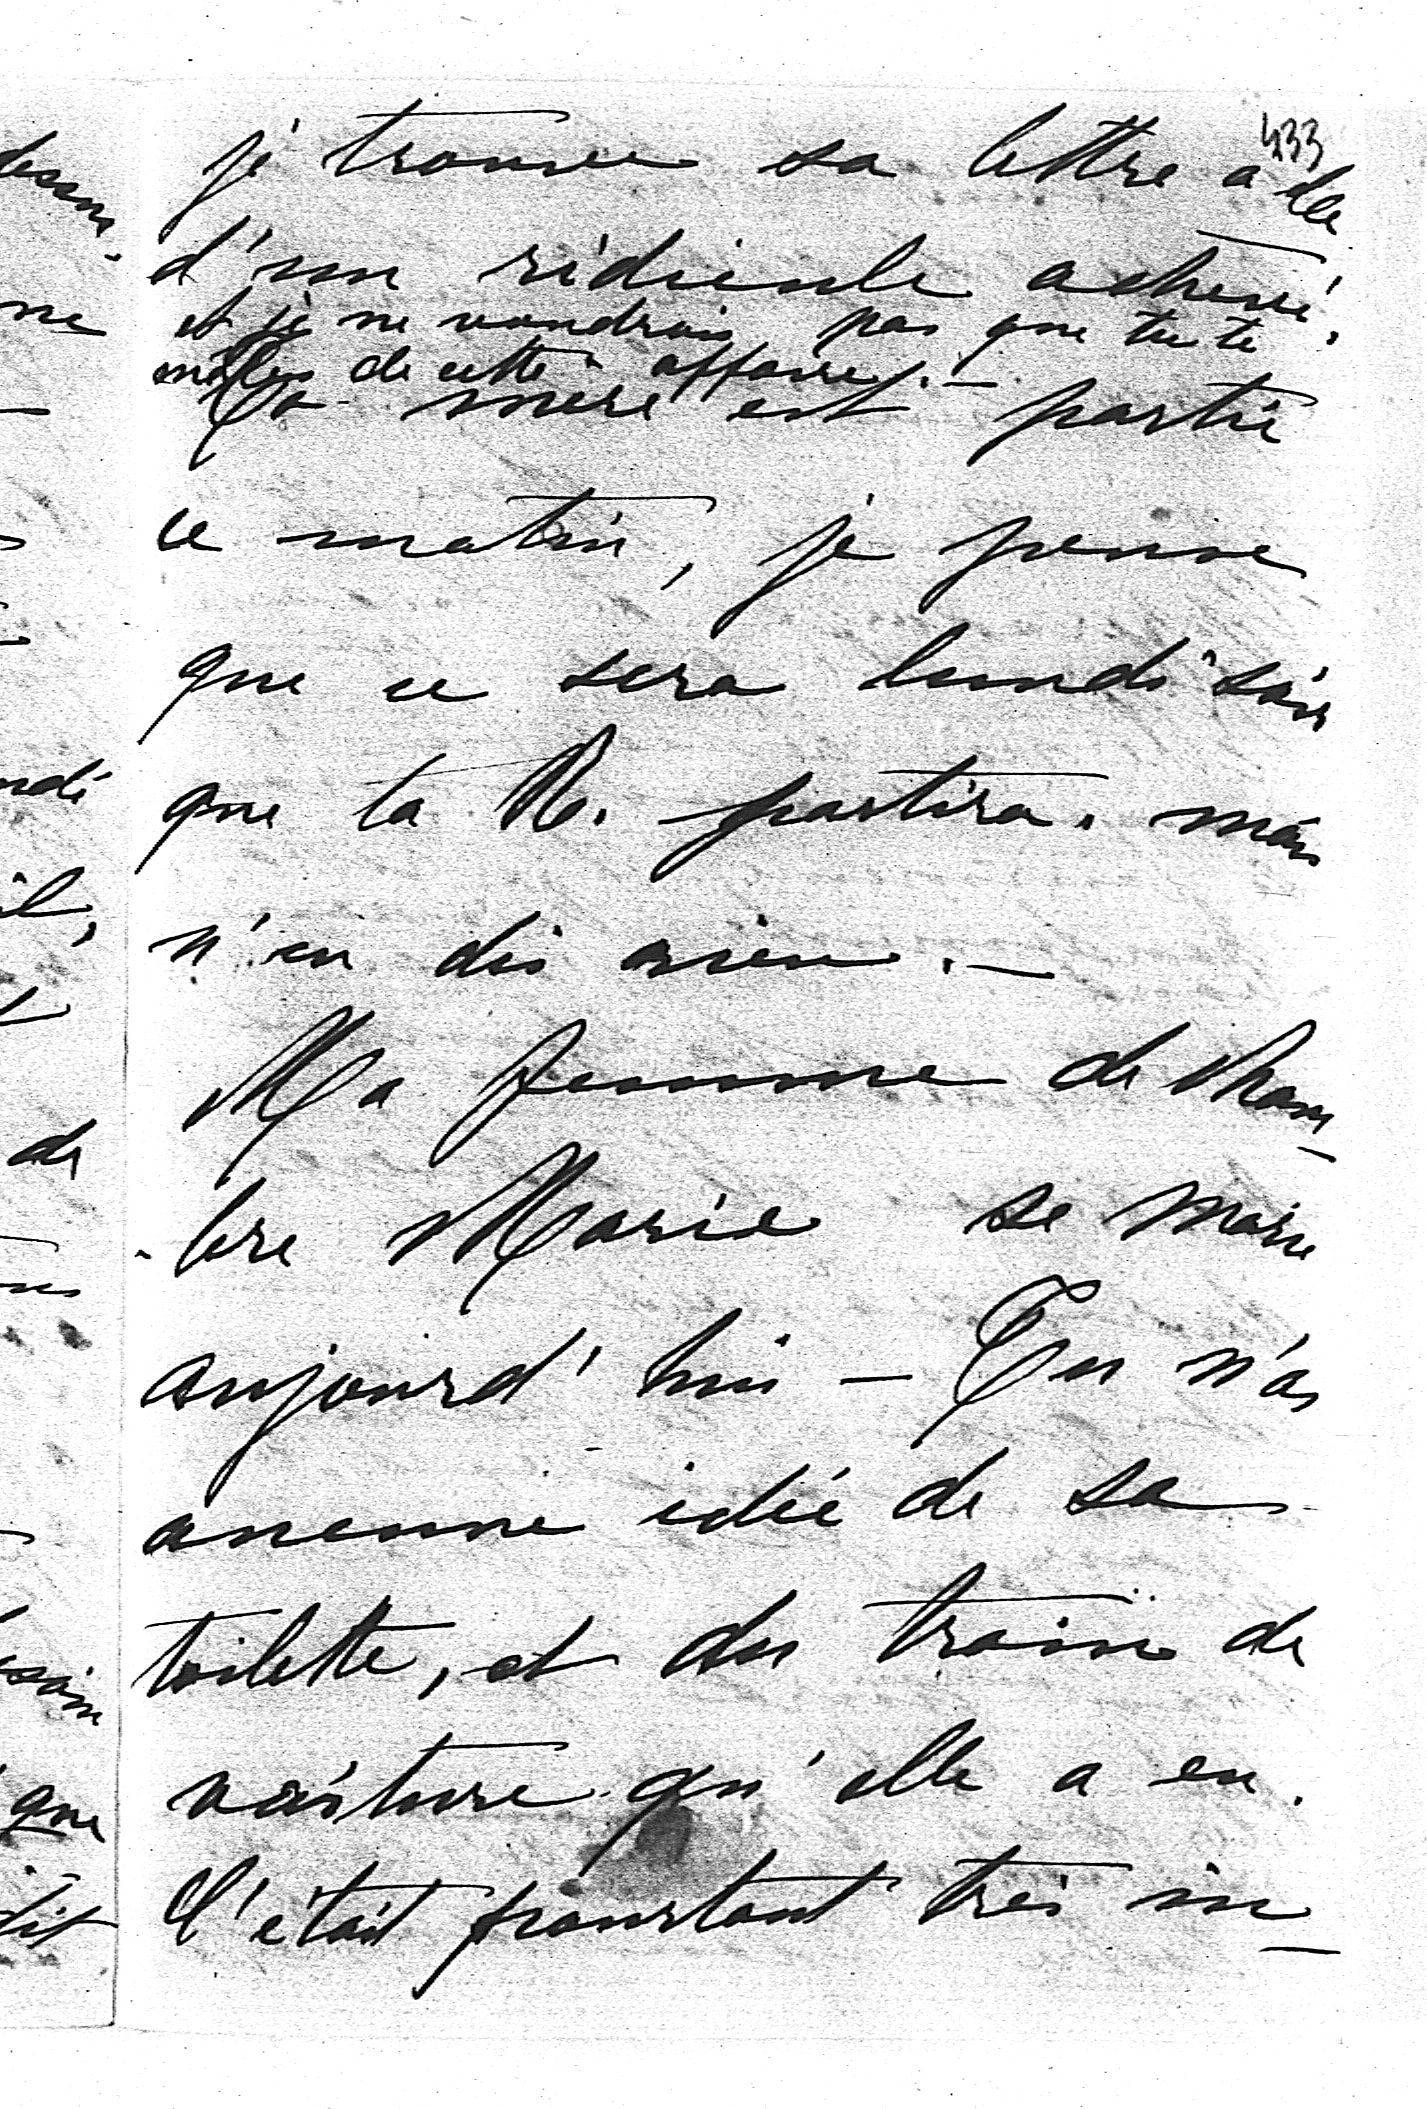 433
je trouve sa lettre à elle
d'un ridicule achevé,
et je ne voudrais pas que tu te
mêles de cette affaire. —
Ta mère est partie
ce matin, je pense
que ce sera lundi soir
que ta R. partira. mais
n'en dis rien. —
Ma femme de cham-
-bre Marie se marie
aujourd'hui — Tu n'as
aucune idée de sa
toilette, et du train de
voiture qu'elle a eu.
C'était pourtant très in-